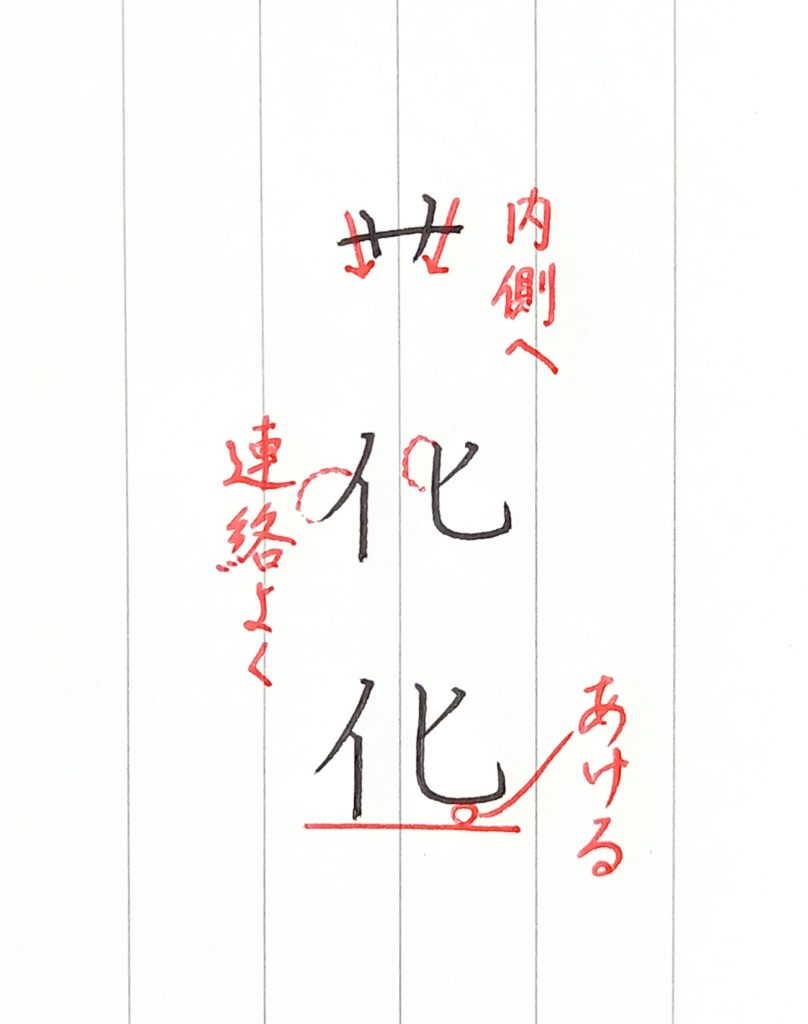 内側へ
艹
化
連絡よく
化
あける